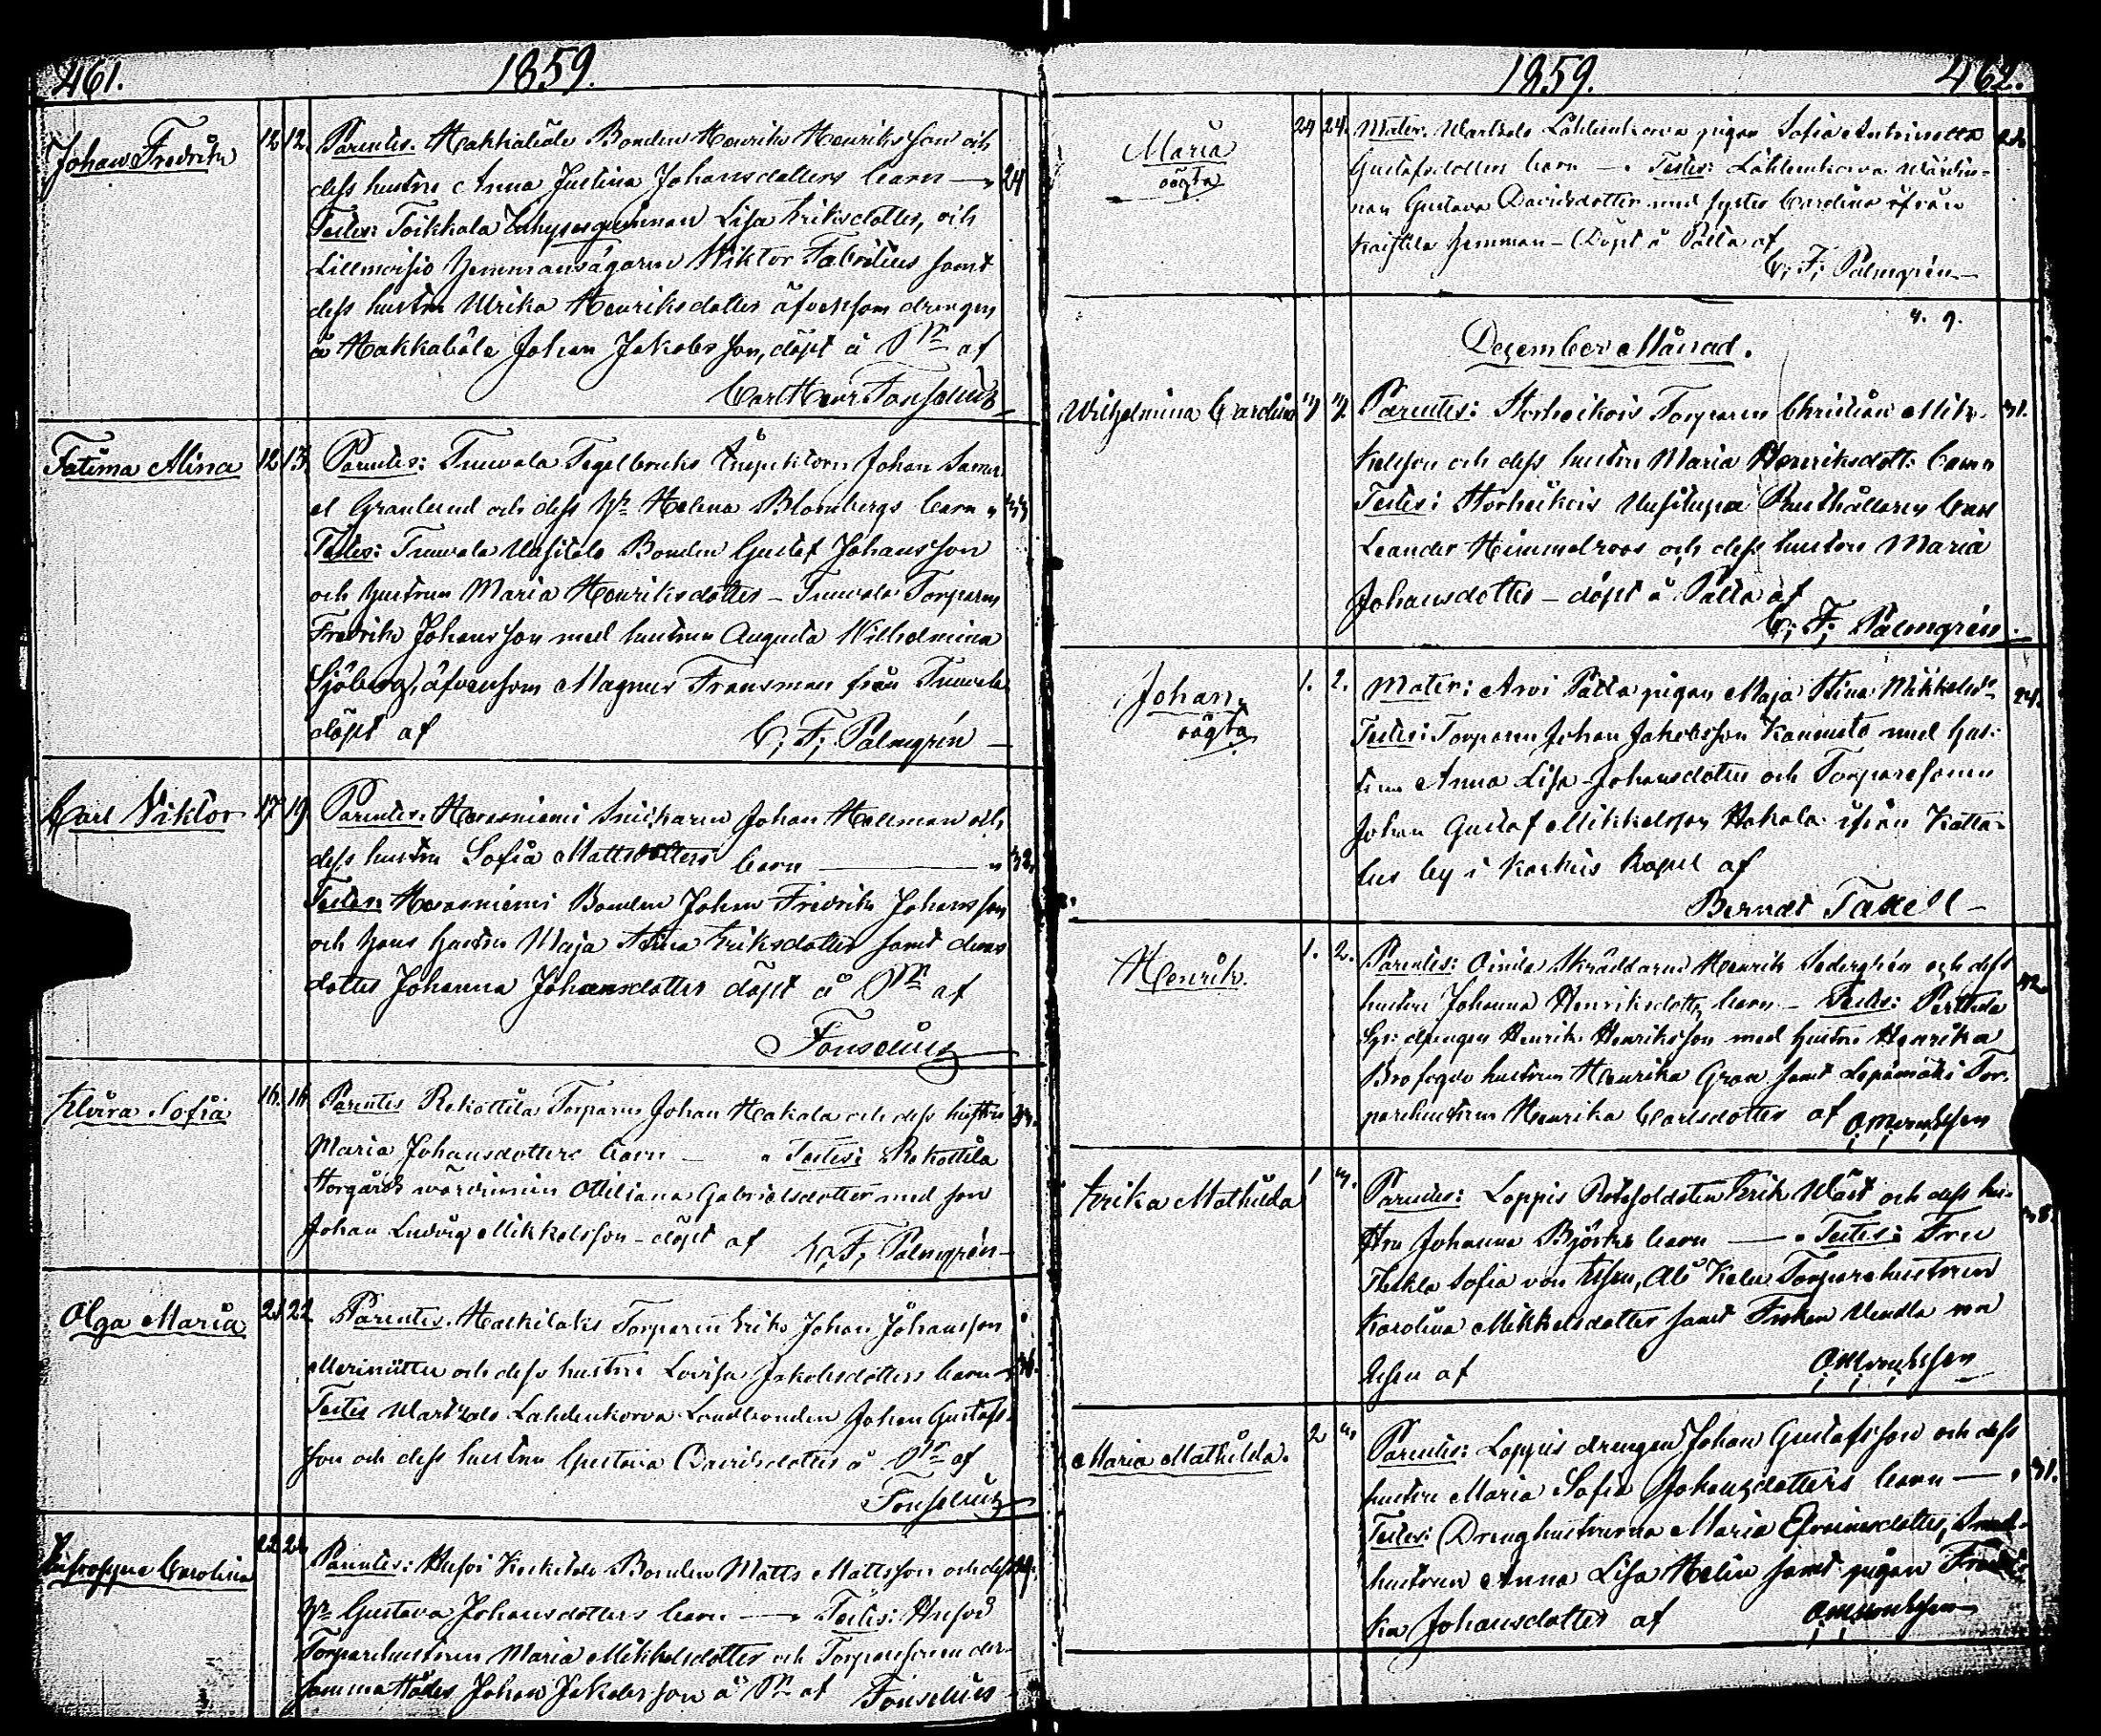 461. 1859.
Johan Fredrik 12 12. Parentes. Hakkabôle Bonden Henrik Henriksson och
dess hustru Anna Justina Johansdotters barn — 24
Testes: Toikkala Lisa Eriksdotter, och
Hemmansägaren Wiktor Fabritius samt
dess hustru Ulrika Henriksdotter äfvensom drengen
å Hakkabôle Johan Jakobsson, döpt å Pn af
Carl Henr Fonselius
Fatima Alina 12 13. Parentes: Tuuvala Tegelbruks Inspektorn Johan Samu-
el Granlund och dess Hr Helena Blombergs barn 33
Testes: Tuuvala Uusitalo Bonden Gustaf Johansson
och hustrun Maria Henriksdotter – Tuuvala Torparen
Fredrik Johansson med hustrun Augusta Wilhelmina
Sjöberg, äfvensom Magnus Fransman från Tuuvala
döpt af C; F; Palmgrén —
Carl Viktor 17 19. Parentes. Havasniemi Snickaren Johan Hellman och
dess hustru Sofia Mattsdotters barn — 32.
Testes: Havasniemi Bonden Johan Fredrik Johansson
och hans hustru Maja Stina Eriksdotter samt deras
dotter Johanna Johansdotter döpt å Pn af
Fonselius
Elvira Sofia 16. 16 Parentes Rekottila Torparen Johan Hakala och dess hustru
Maria Johansdotters barn — Testes: Rekottila
Storgårds värdinnan Ottiliana Gabrielsdotter med son
Johan Ludvig Mikkelsson – döpt af C; F; Palmgrén —
Olga Maria 21 22 Parentes. Torparen Erik Johan Johansson
och dess hustru Lovisa Jakobsdotters barn 36.
Testes Lahdenkorva Landbonden Johan Gustafs-
son och dess hustru Gustava Davidsdotter å Pn af
Fonselius
Carolina 22 24 Parentes: Bonden Matts Mattsson och dess
Hr Gustava Johansdotters barn — Testes:
Torparehustrun Maria Mikkelsdotter och Torparesonen der-
samma städes Johan Jakobsson å Pn af Fonselius
1859. 462.
Maria 24 24. Mater. Lähteenkorva pigan Sofia Antoinetta
oägta Gustafsdotters barn — Testes: Lähteenkorva Wärdin-
nan Gustava Davidsdotter med syster Carolina ifrån
hemman – Döpt å Pälta af
C; F; Palmgrén —
4. 9.
December Månad.
Wilhelmina Carolina Parentes: Storheikois Torparen Christian Mik-
kelsson och dess hustru Maria Henriksdott: barn 31.
Testes: Storheikois Uusitupa Rusthållaren Carl
Leander Himmelroos och dess hustru Maria
Johansdotter – döpt å Pälta af
C; F; Palmgrén
Johan 1. 2. Mater: Arvi Pälta pigan Maja Stina Mikkelsdr 24.
oägta Testes: Torparen Johan Jakobsson Kannisto med hus-
trun Anna Lisa Johansdotter och Torparesonen
Johan Gustaf Mikkelsson Hakala ifrån
by i Karkus kapell af
Berndt Taxell —
Henrik. 1. 2. Parentes: Oinila Skräddaren Henrik Sedergrén och dess
hustru Johanna Henriksdotts barn — Testes: Perttula 42
drengen Henrik Henriksson med hustru Henrika
Brofogde hustrun Henrika Gran samt Lepämäki Tor-
parehustrun Henrika Carlsdotter af
Erika Mathilda 1 Parentes: Loppis Rotesoldaten Erik Wäst och dess hu-
stru Johanna Björks barn — Testes: Fru 38.
Thekla Sofia von Essen, Torparehustrun
Karolina Mikkelsdotter samt Fröken Vendla von
Essen af
Maria Mathilda. 2 Parentes: Loppis drengen Johan Gustafsson och dess
hustru Maria Sofia Johansdotters barn — 31.
Testes: Drenghustrurna Maria Efraimsdotter,
hustrun Anna Lisa Helin samt pigan Fredri-
ka Johansdotter af